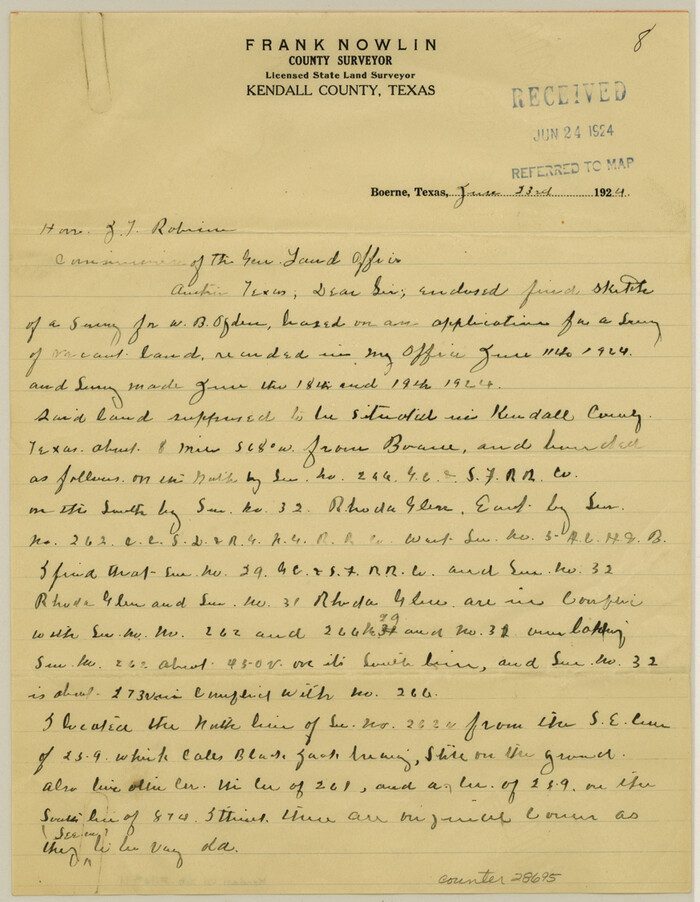 FRANK NOWLIN
COUNTY SURVEYOR
Licensed State Land Surveyor
KENDALL COUNTY, TEXAS
8
RECEIVED
JUN 24 1924
REFERRED TO MAP
Boerne, Texas, June 23rd 1924
Hon. J. T. Robison
Commissioner of the Gen. Land Office
Austin Texas, Dear Sir; enclosed find sketch
of a Survey for W. B. Ogden, based on an application for a Survey
of vacant land, recorded in my Office June 11th 1924.
and Survey made June the 18th and 19th 1924.
Said land supposed to be situated in Kendall County.
Texas. about 8 miles S 68° W. from Boerne, and bounded
as follows. on the North by Sur. No. 266. G.C. & S.F. RR. Co.
on the South by Sur. No. 32. Rhoda Glen, East by Sur.
No. 262. R.R. Co. West Sur. No. 5
I find that Sur. No. 29. G.C. & S.F. RR. Co. and Sur. No. 32
Rhoda Glen and Sur. No. 31 Rhoda Glen are in Conflict
with Sur. No. 262 and 266 29 and No. 32 over lapping
Sur. No. 262 about 450 v. on its South line, and Sur. No. 32
is about 273 v. in Conflict with No. 266.
I located the North line of Sur. No. from the S.E. Cor.
of 259. which Calls Black Jack bearing, Still on the ground.
also 261, and 259. on the
South line of 874. I think these are original Corners as
they (Seems) to be very old.
counter 28695